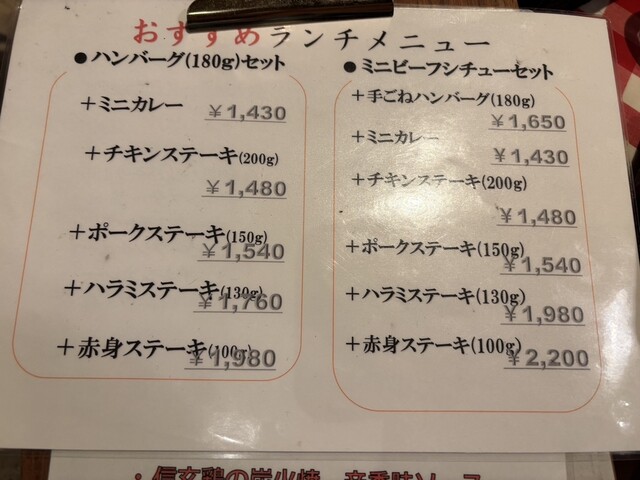 おすすめランチメニュー
●ハンバーグ(180g)セット
＋ミニカレー
￥1,430
＋チキンステーキ(200g)
￥1,480
＋ポークステーキ(150g)
￥1,540
＋ハラミステーキ(130g)
￥1,760
＋赤身ステーキ(100g)
￥1,980
●ミニビーフシチューセット
＋手ごねハンバーグ(180g)
￥1,650
＋ミニカレー
￥1,430
＋チキンステーキ(200g)
￥1,480
＋ポークステーキ(150g)
￥1,540
＋ハラミステーキ(130g)
￥1,980
＋赤身ステーキ(100g)
￥2,200
・信玄鶏の炭火焼